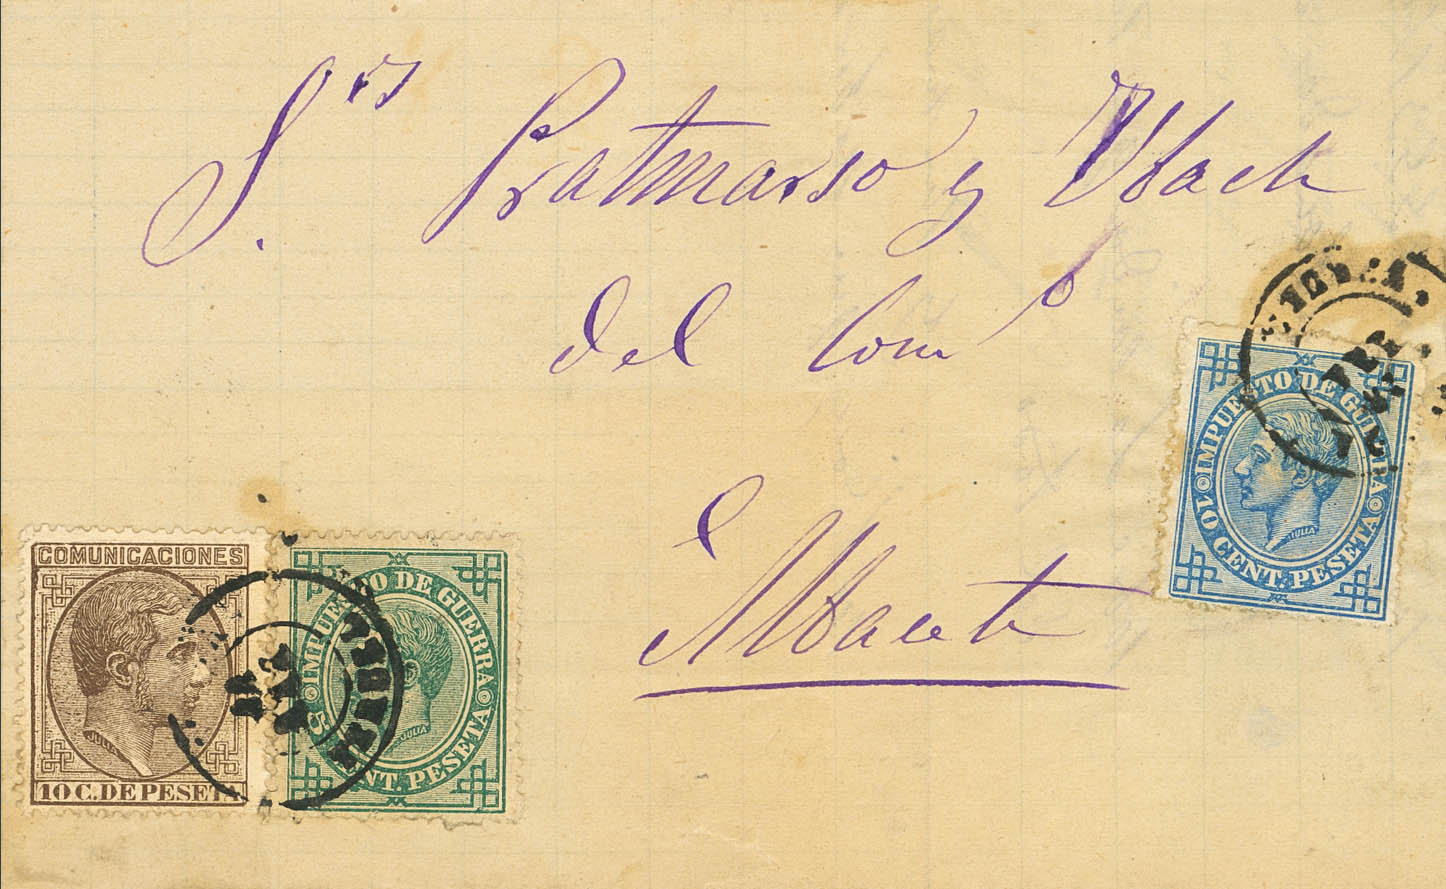 S.res Pratmarso y Ubach
del Com.o
Albacete
COMUNICACIONES
JULIA
10 C. DE PESETA
IMPUESTO DE GUERRA
5 CENT. PESETA
JULIA
IMPUESTO DE GUERRA
10 CENT. PESETA
JULIA